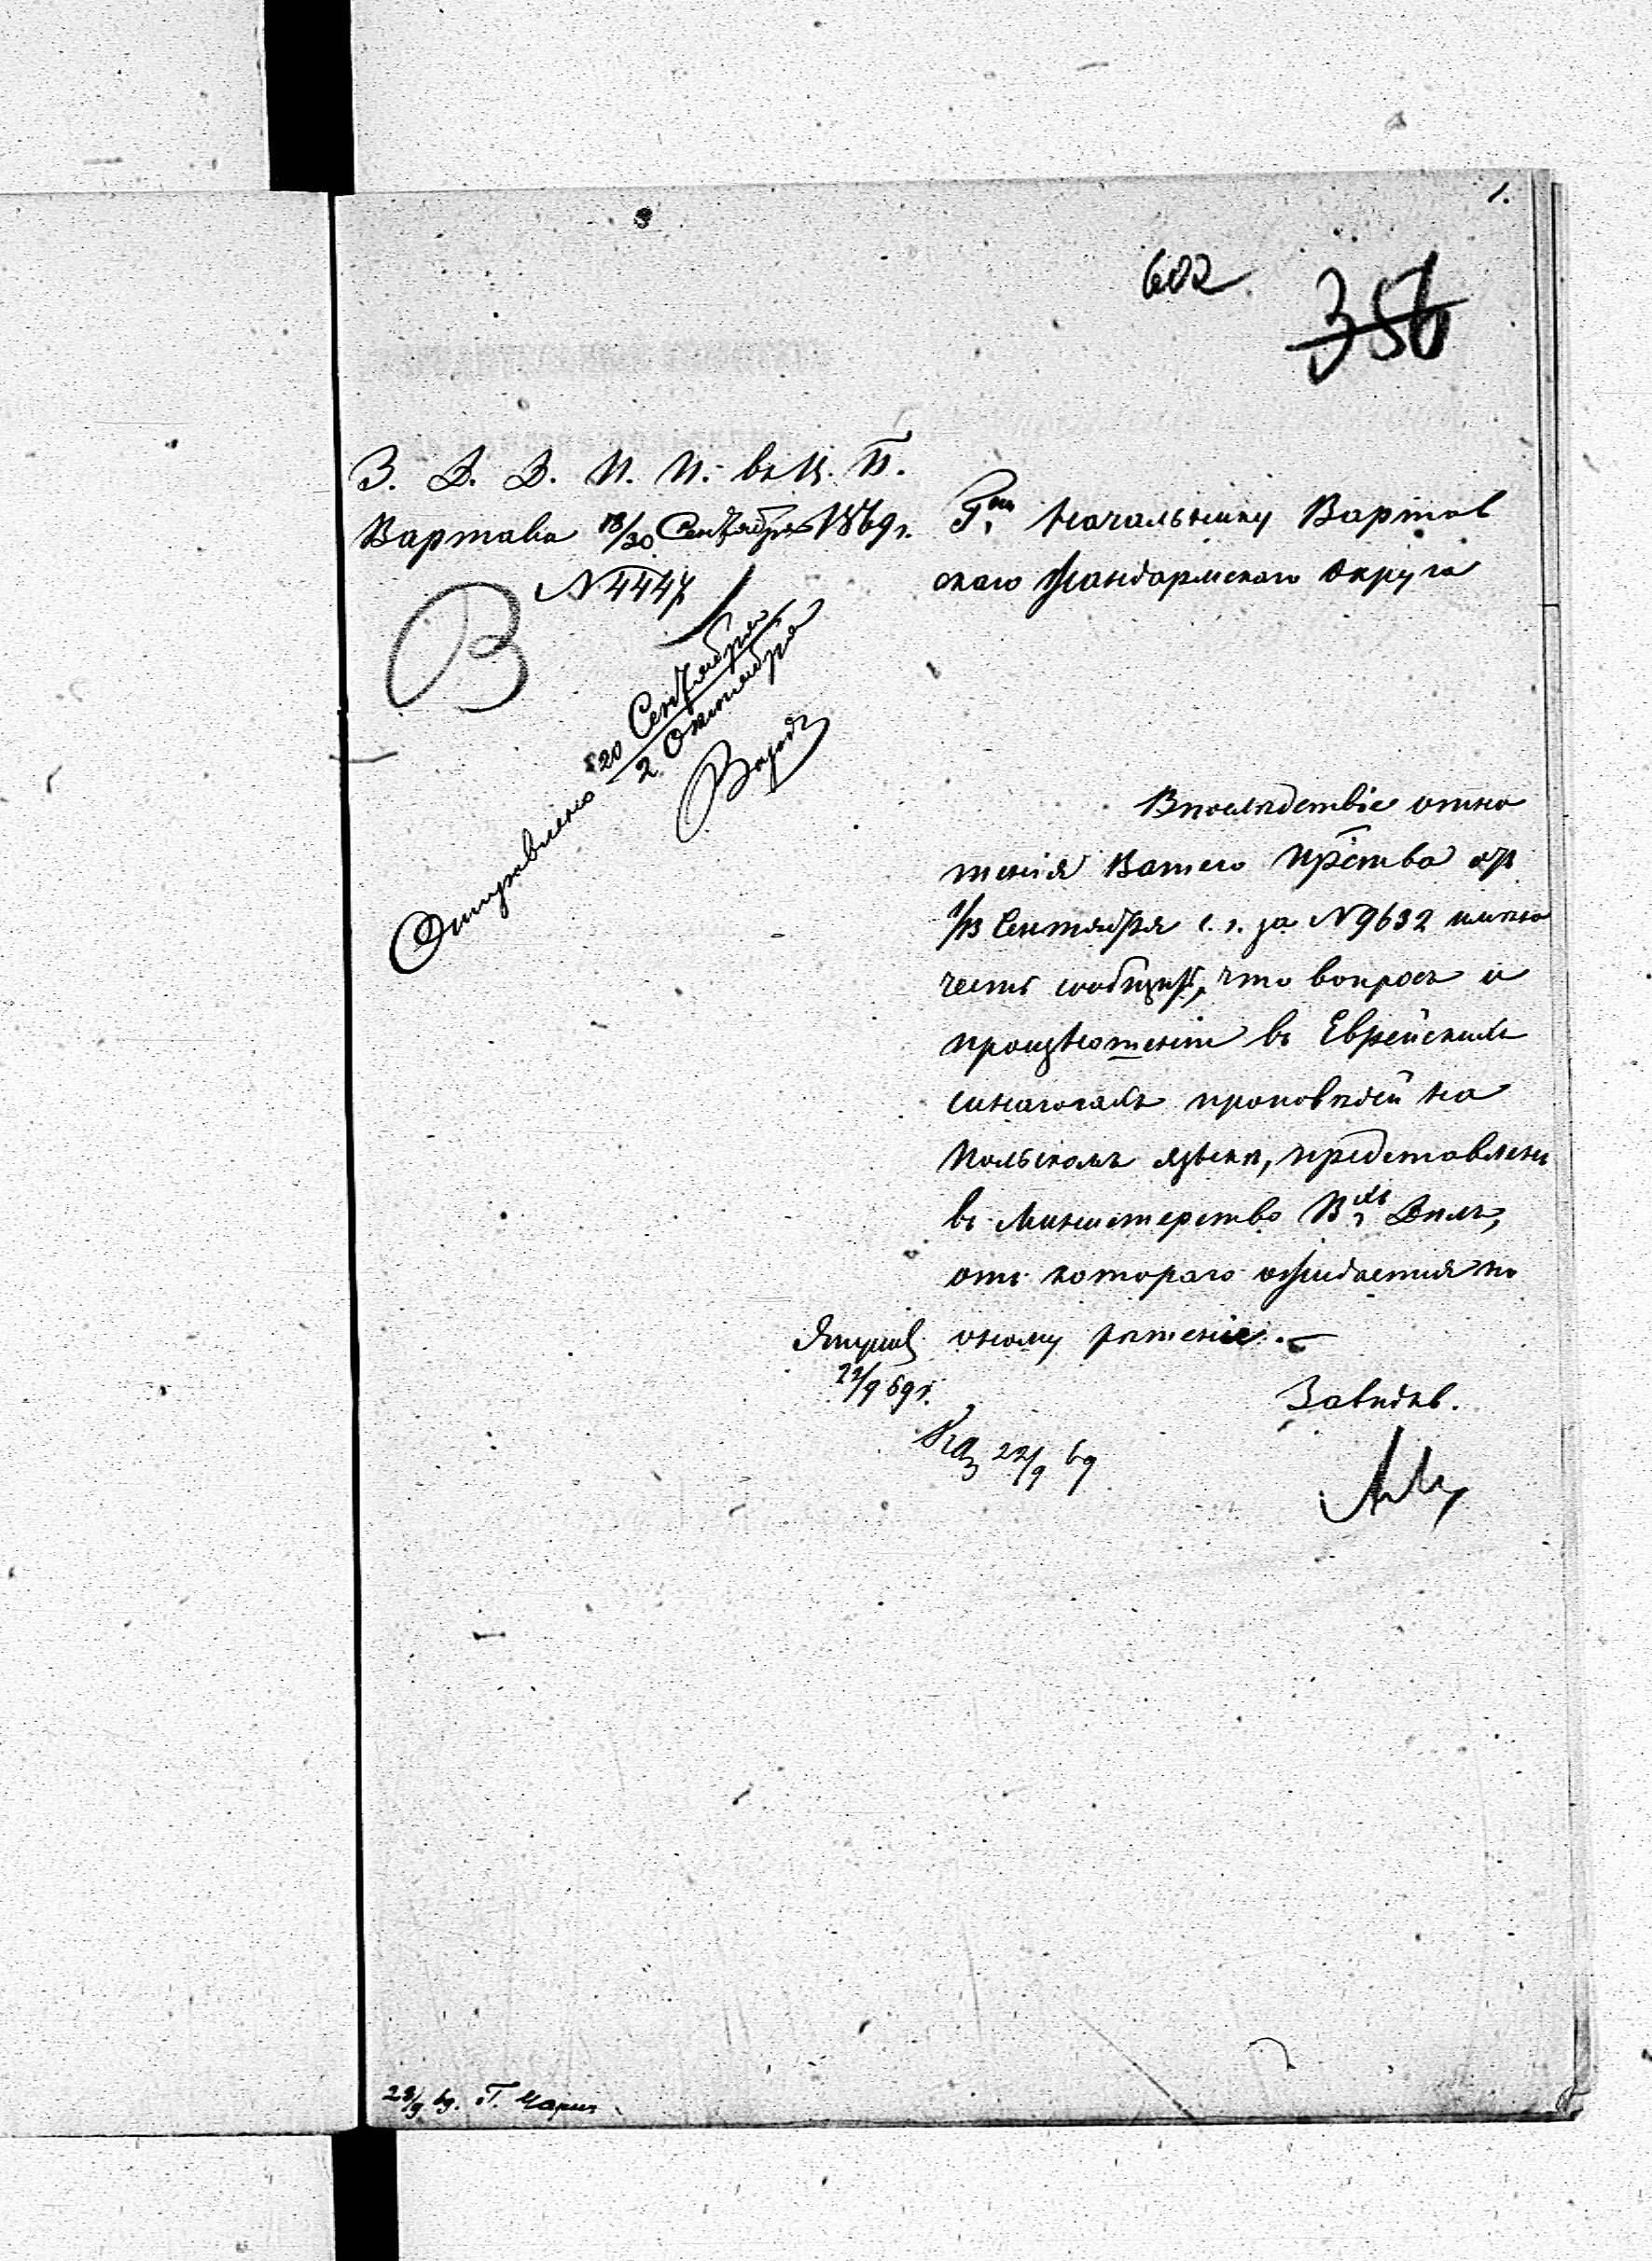 1.
602
356
З. Д. Д. И. И. въ Ц. П.
Варшава 18/30 Сентября 1869 г.
N 4447
В
Отправлено 20 Сентября
2 Октября
Гну Начальнику Варшав
скаго Жандармскаго Округа
Впослѣдствіе отно
шенія Вашего Прества отъ
1/13 Сентября с. г. за N 9632 имѣю
честь сообщить, что вопросъ о
произношеніи въ Еврейскихъ
синагогахъ проповѣдей на
Польскомъ языкѣ, представленъ
въ Министерство Внхъ Дѣлъ,
отъ котораго ожидается по
оному рѣшеніе.
22/9 69 г.
Завѣдыв.
22/9 69
23/9 69. Г.